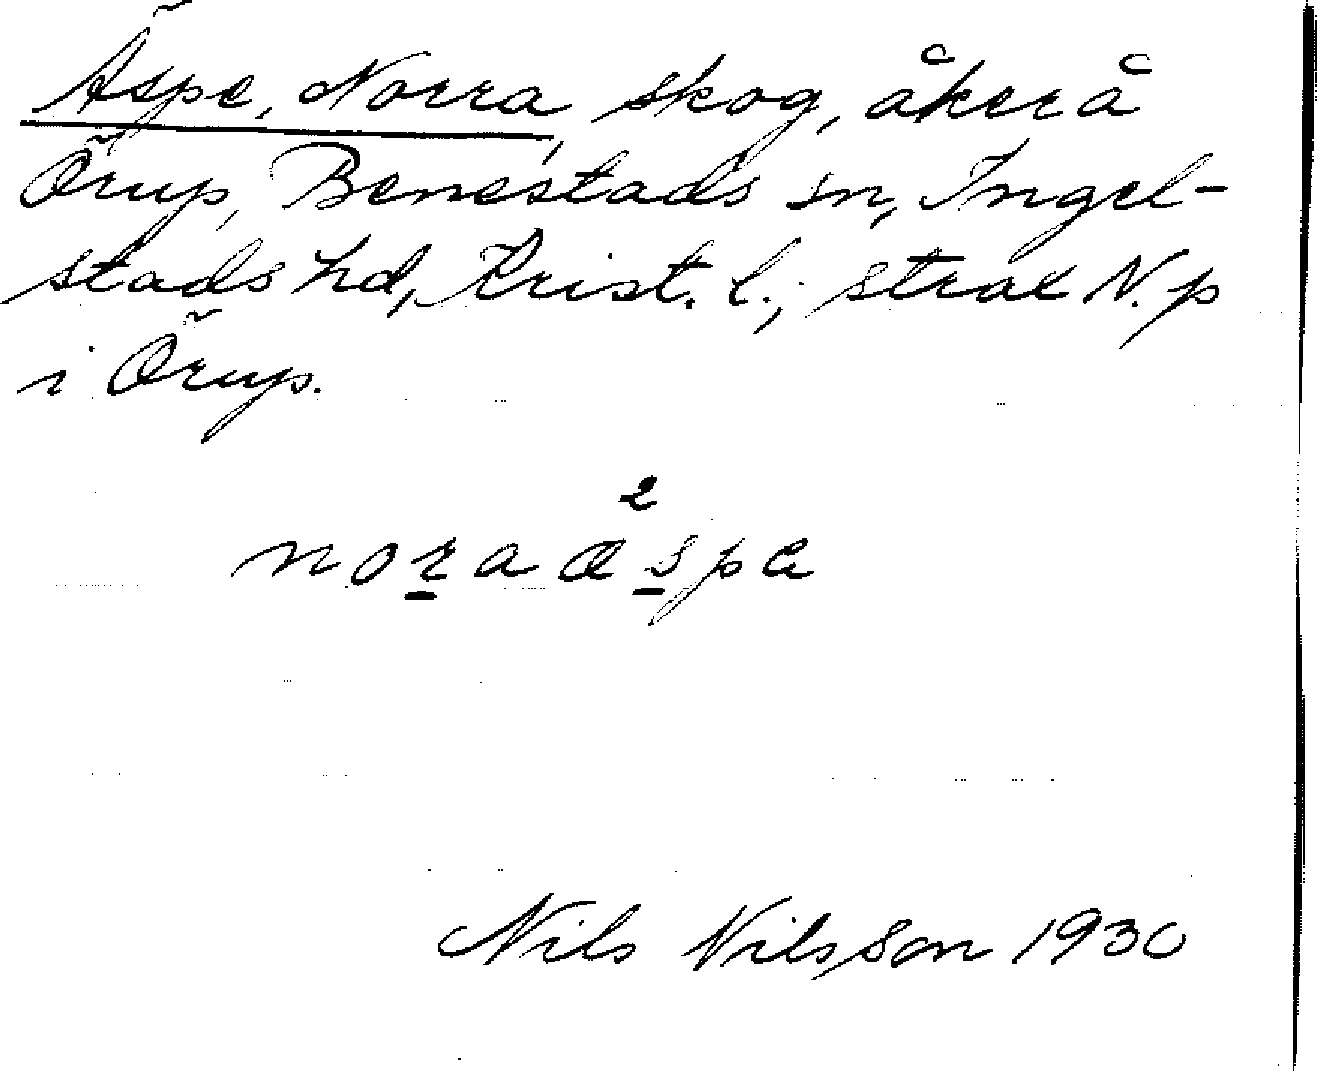 Äspe, Norra, skog, åker å
Örup, Benestads sn, Ingel-
stads hd, Krist. l.; strax N. p
i Örup.
2
nora æspe
Nils Nilsson 1930